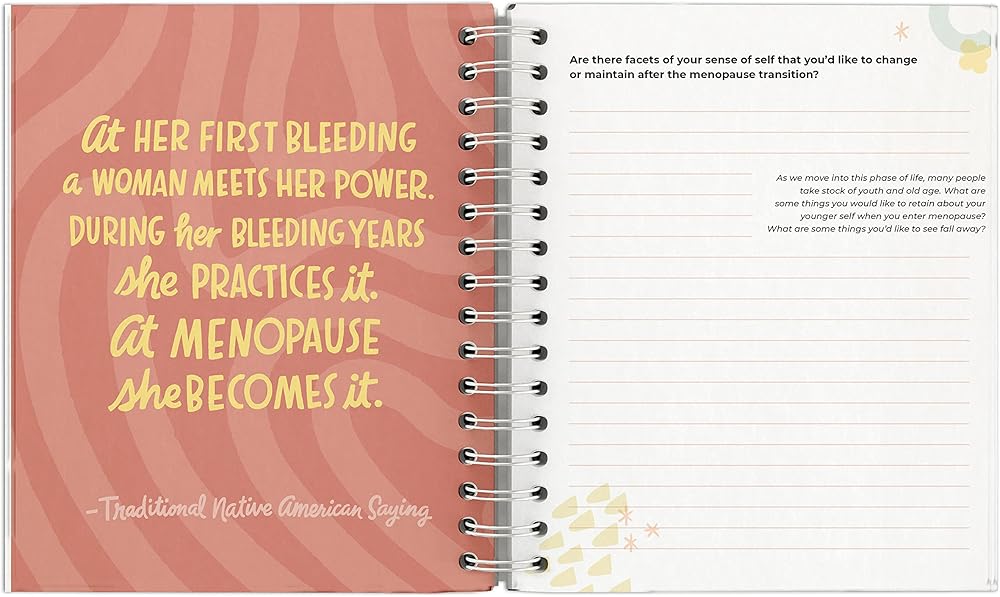 At HER FIRST BLEEDING
a WOMAN MEETS HER POWER.
DURING her BLEEDING YEARS
she PRACTICES it.
At MENOPAUSE
she BECOMES it.
–Traditional Native American Saying
Are there facets of your sense of self that you'd like to change
or maintain after the menopause transition?
As we move into this phase of life, many people
take stock of youth and old age. What are
some things you would like to retain about your
younger self when you enter menopause?
What are some things you'd like to see fall away?